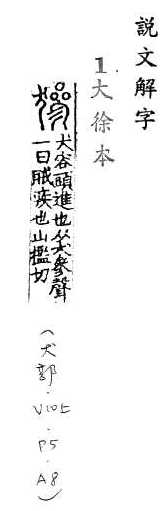 說文解字
1.大徐本
㺑犬容頭進也从犬參聲
一曰賊疾也山檻切
(犬部.V10上.P5.A8)